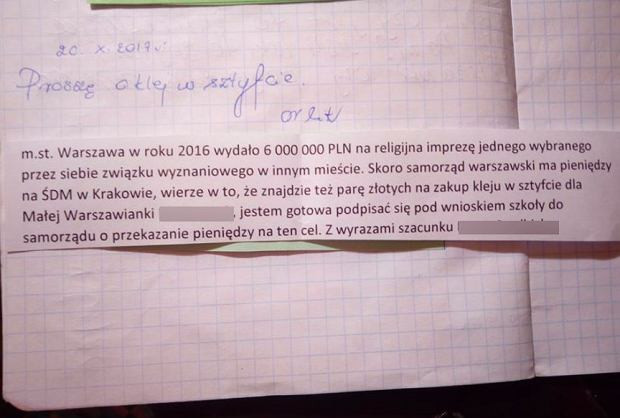 20. X. 2017 r.
Proszę o klej w sztyfcie.
m.st. Warszawa w roku 2016 wydało 6 000 000 PLN na religijna imprezę jednego wybranego
przez siebie związku wyznaniowego w innym mieście. Skoro samorząd warszawski ma pieniędzy
na ŚDM w Krakowie, wierze w to, że znajdzie też parę złotych na zakup kleju w sztyfcie dla
Małej Warszawianki , jestem gotowa podpisać się pod wnioskiem szkoły do
samorządu o przekazanie pieniędzy na ten cel. Z wyrazami szacunku